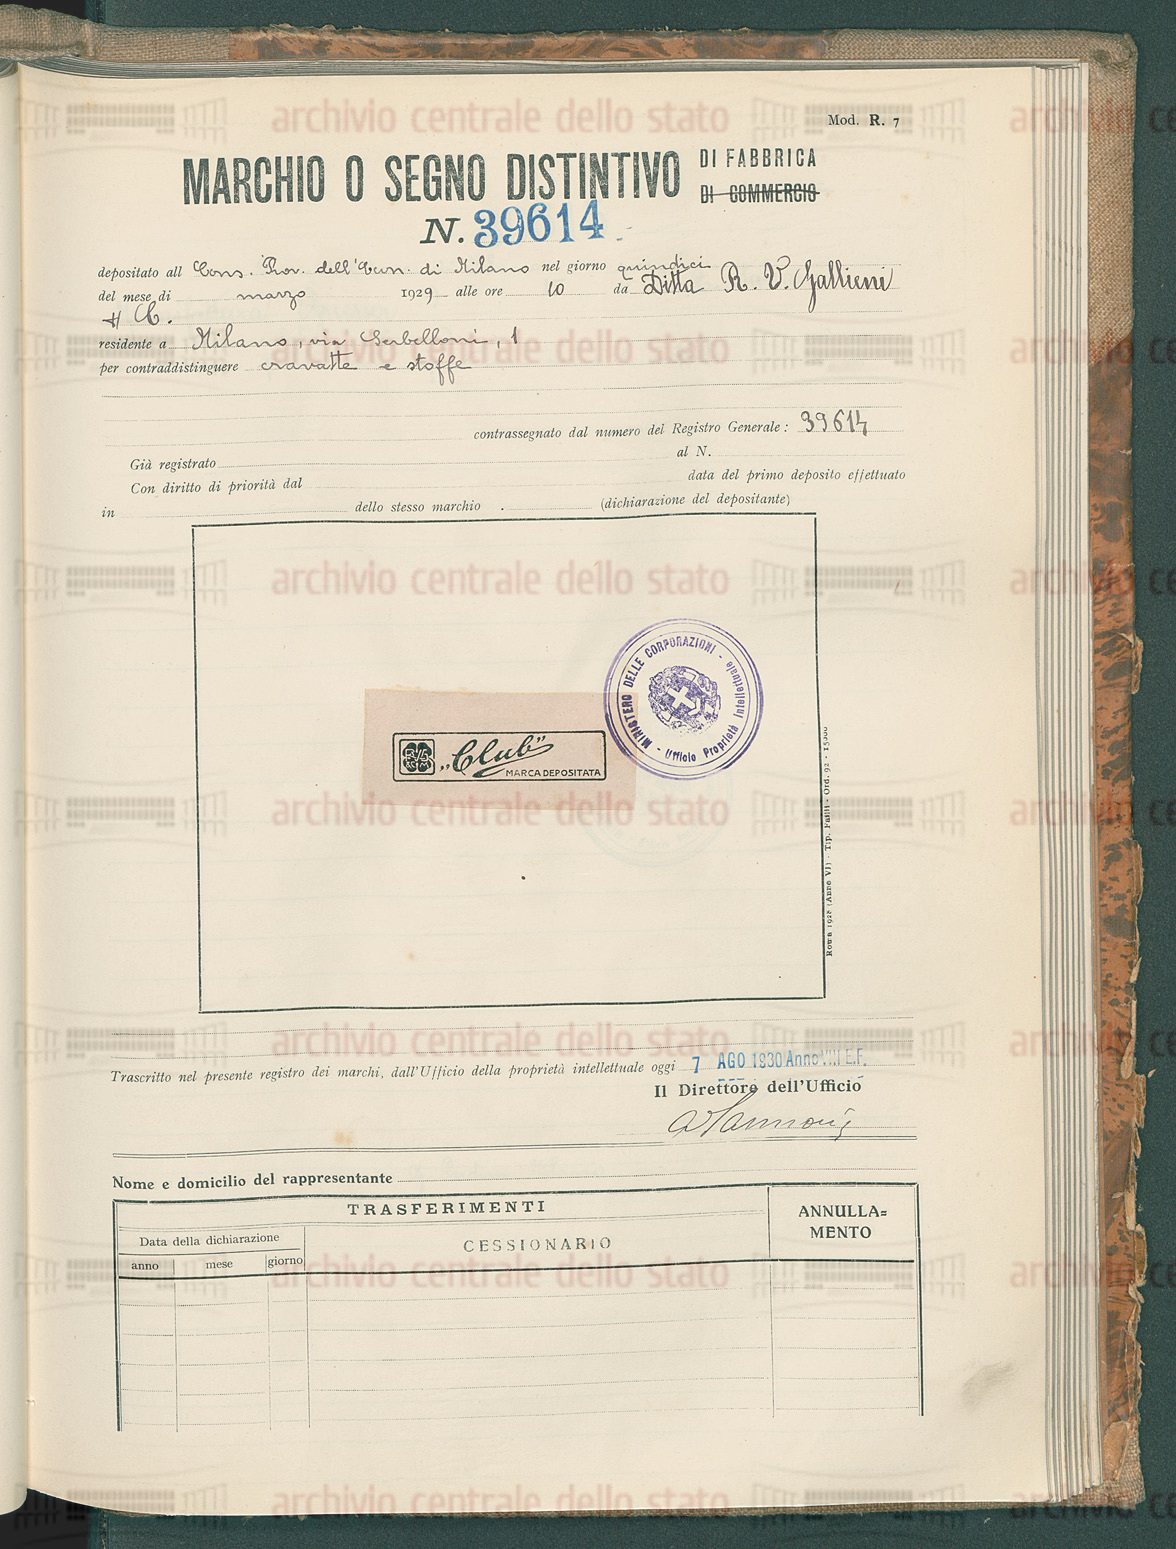 Mod. R. 7
MARCHIO O SEGNO DISTINTIVO DI FABBRICA
DI COMMERCIO
N. 39614
depositato all Cons. Prov. dell'Econ. di Milano nel giorno quindici
del mese di marzo 1929 alle ore 10 da Ditta R. V. Gallieni
& C.
residente a Milano, via Serbelloni, 1
per contraddistinguere cravatte e stoffe
contrassegnato dal numero del Registro Generale: 39614
Già registrato al N.
Con diritto di priorità dal data del primo deposito effettuato
in dello stesso marchio (dichiarazione del depositante)
MINISTERO DELLE CORPORAZIONI - Ufficio Proprietà Intellettuale -
„Club”
MARCA DEPOSITATA
Roma 1928 (Anno VI) - Tip. Failli - Ord. 92 -
Trascritto nel presente registro dei marchi, dall'Ufficio della proprietà intellettuale oggi 7 AGO 1930 Anno VIII E.F.
Il Direttore dell'Ufficio
Nome e domicilio del rappresentante
TRASFERIMENTI
ANNULLA=
MENTO
Data della dichiarazione
CESSIONARIO
anno mese giorno
archivio centrale dello stato